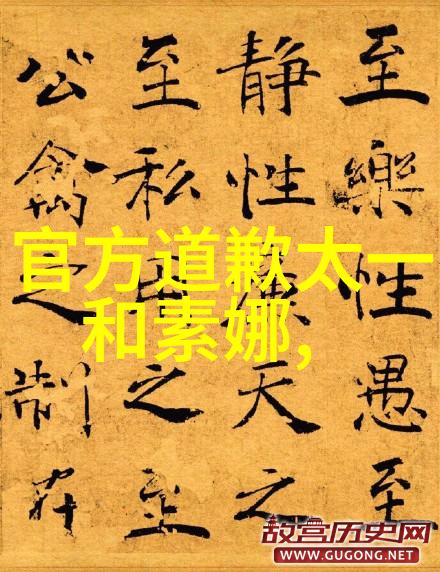 至樂性愚至
静性天之
至私之至
公禽之制在
官方道歉太一
和素娜,
故宫历史网
WWW.GUGONG.NET